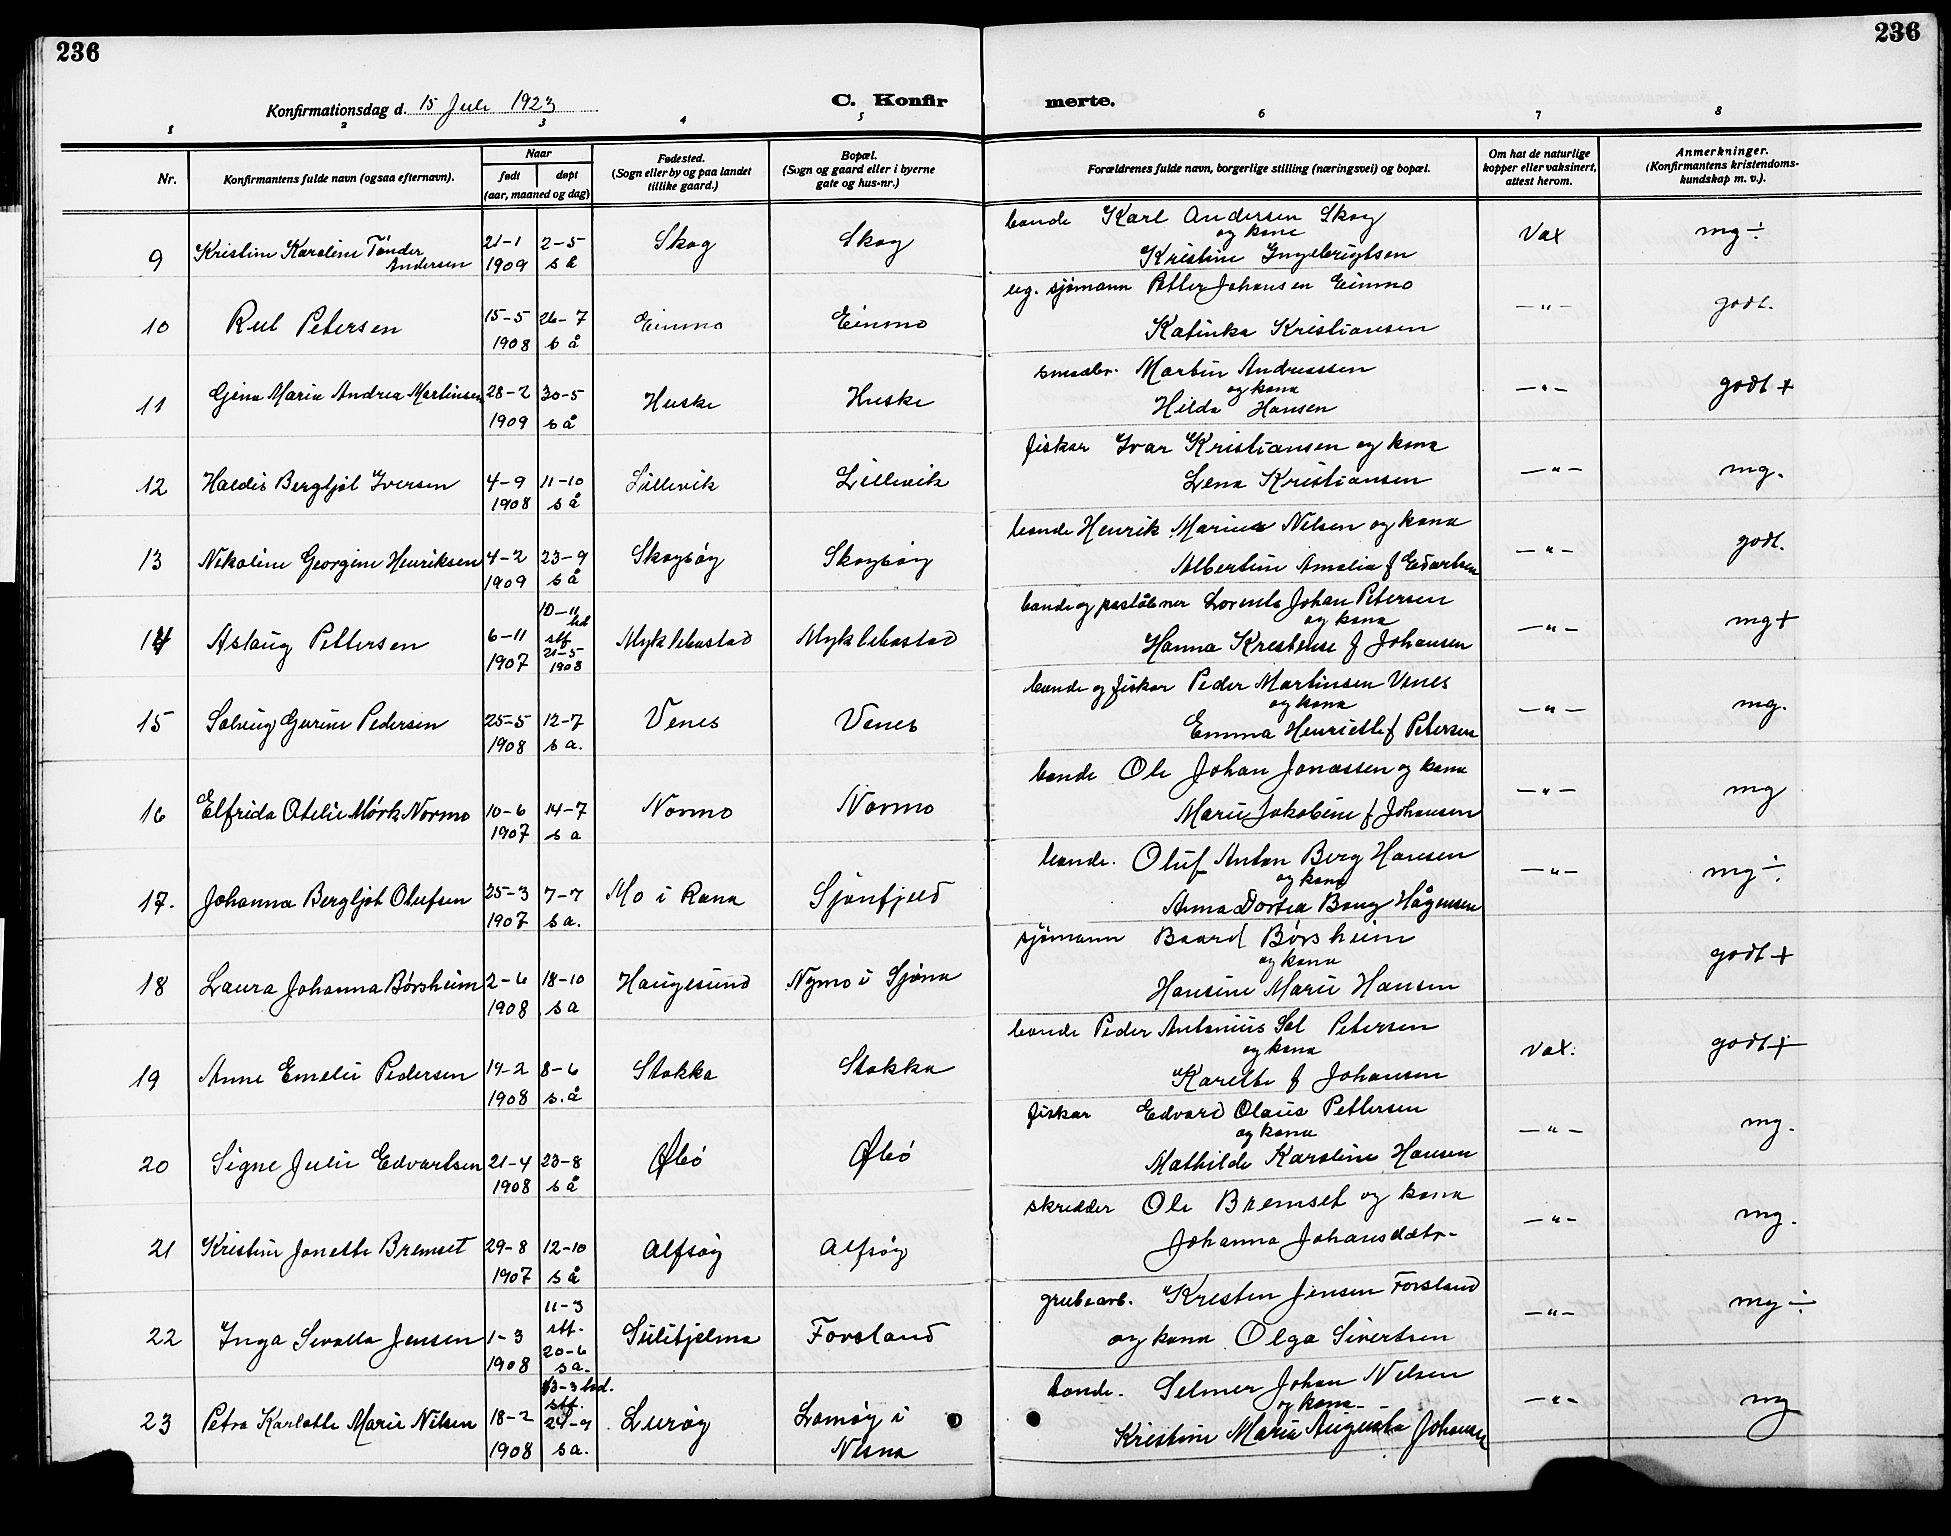 236
236
Konfirmationsdag d. 15 Juli 1923
C. Konfir
merte.
1 2 3 4 5 6 7 8
Nr.
Konfirmantens fulde navn (ogsaa efternavn).
Naar
født
døpt
(aar, maaned og dag)
Fødested.
(Sogn eller by og paa landet
tillike gaard.)
Bopæl.
(Sogn og gaard eller i byerne
gate og hus-nr.)
Forældrenes fulde navn, borgerlige stilling (næringsvei) og bopæl.
Om hat de naturlige
kopper eller vaksinert,
attest herom.
Anmerkninger.
(Konfirmantens kristendoms-
kundskap m. v.).
9 Kristine Karoline Tønder Andersen 21-1 1909 2-5 s å Skog Skog
bonde Karl Andersen Skog
og kone
Kristine Ingebrigtsen
Vax mg ÷
10 Rut Petersen 15-5 1908 26-7 s å Einmo Einmo
ug. sjømann Petter Johansen Einmo
Katinka Kristiansen
-"- godt.
11 Gjena Maria Andrea Martinsen 28-2 1909 30-5 s å Huske Huske
smaabr. Martin Andreassen
og kona
Hilda Hansen
-"- godt +
12 Haldis Bergljot Iversen 4-9 1908 11-10 s å Lillevik Lillevik
fisker Ivar Kristiansen og kona
Lena Kristiansen
-"- mg.
13 Nikoline Georgine Henriksen 4-2 1909 23-9 s å Skogsøy Skogsøy
bonde Henrik Marius Nilsen og kona
Albertine Amalia f Edvartsen
-"- godt.
14 Aslaug Pettersen 6-11 1907 10-11 hd stf 21-5 1908 Myklebostad Myklebostad
bonde og poståbner Lorents Johan Petersen
og kona
Hanna Krestense f Johansen
-"- mg +
15 Solveig Gurine Pedersen 25-5 1908 12-7 s a. Venes Venes
bonde og fisker Peder Martinsen Venes
og kona
Emma Henriette f Petersen
-"- mg.
16 Elfrida Otelie Mørk Normo 10-6 1907 14-7 s a Normo Normo
bonde Ole Johan Jonassen og kona
Marie Jakobine f Johansen
-"- mg
17. Johanna Bergljot Olufsen 25-3 1907 7-7 s a. Mo i Rana Sjonfjeld
bonde. Oluf Anton Berg Hansen
og kona
Anna Dortea Bang Hågensen
-"- mg ÷
18 Laura Johanna Børsheim 2-6 1908 18-10 s a Haugesund Nymo i Sjona
sjømann Baard Børsheim
og kona
Hansine Marie Hansen
godt +
19 Anne Emelie Pedersen 19-2 1908 8-6 s. å Stokka Stokka
bonde Peder Antonius Sol Petersen
og kona
Karette f Johansen
Vax. godt +
20 Signe Julie Edvartsen 21-4 1908 23-8 s å Øbø Øbø
fisker Edvard Olaus Pettersen
og kona
Mathilde Karoline Hansen
-"- mg.
21 Kristine Jonette Bremset 29-8 1907 12-10 s å Alfsøy Alfsøy
skredder Ole Bremset og kona
Johanna Johansdatr-
-"- mg.
22 Inga Sevalla Jensen 1-3 1908 11-3 stf. 20-6 s a. Sulitjelma Forsland
grubearb. Kresten Jensen Forsland
og kona Olga Sivertsen
-"- mg ÷
23 Petra Karlotte Marie Nilsen 18-2 1908 13-3 hd. stf. 24-9 s a. Lurøy Lamøy i Nesna
bonde. Selmer Johan Nilsen
og kona
Kristine Marie Augusta Johansen
-"- mg